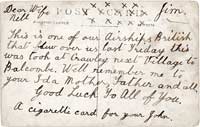 Dear Wife
Nell
x x x x x x Jim.
POST CARD
x x x x
This is one of our Airships British
that flew over us last Friday this
was took at Crawley next Village to
Balcombe. Well remember me to
your Ida Mother Father and all
Good Luck To All of You.
A cigarette card for your John.